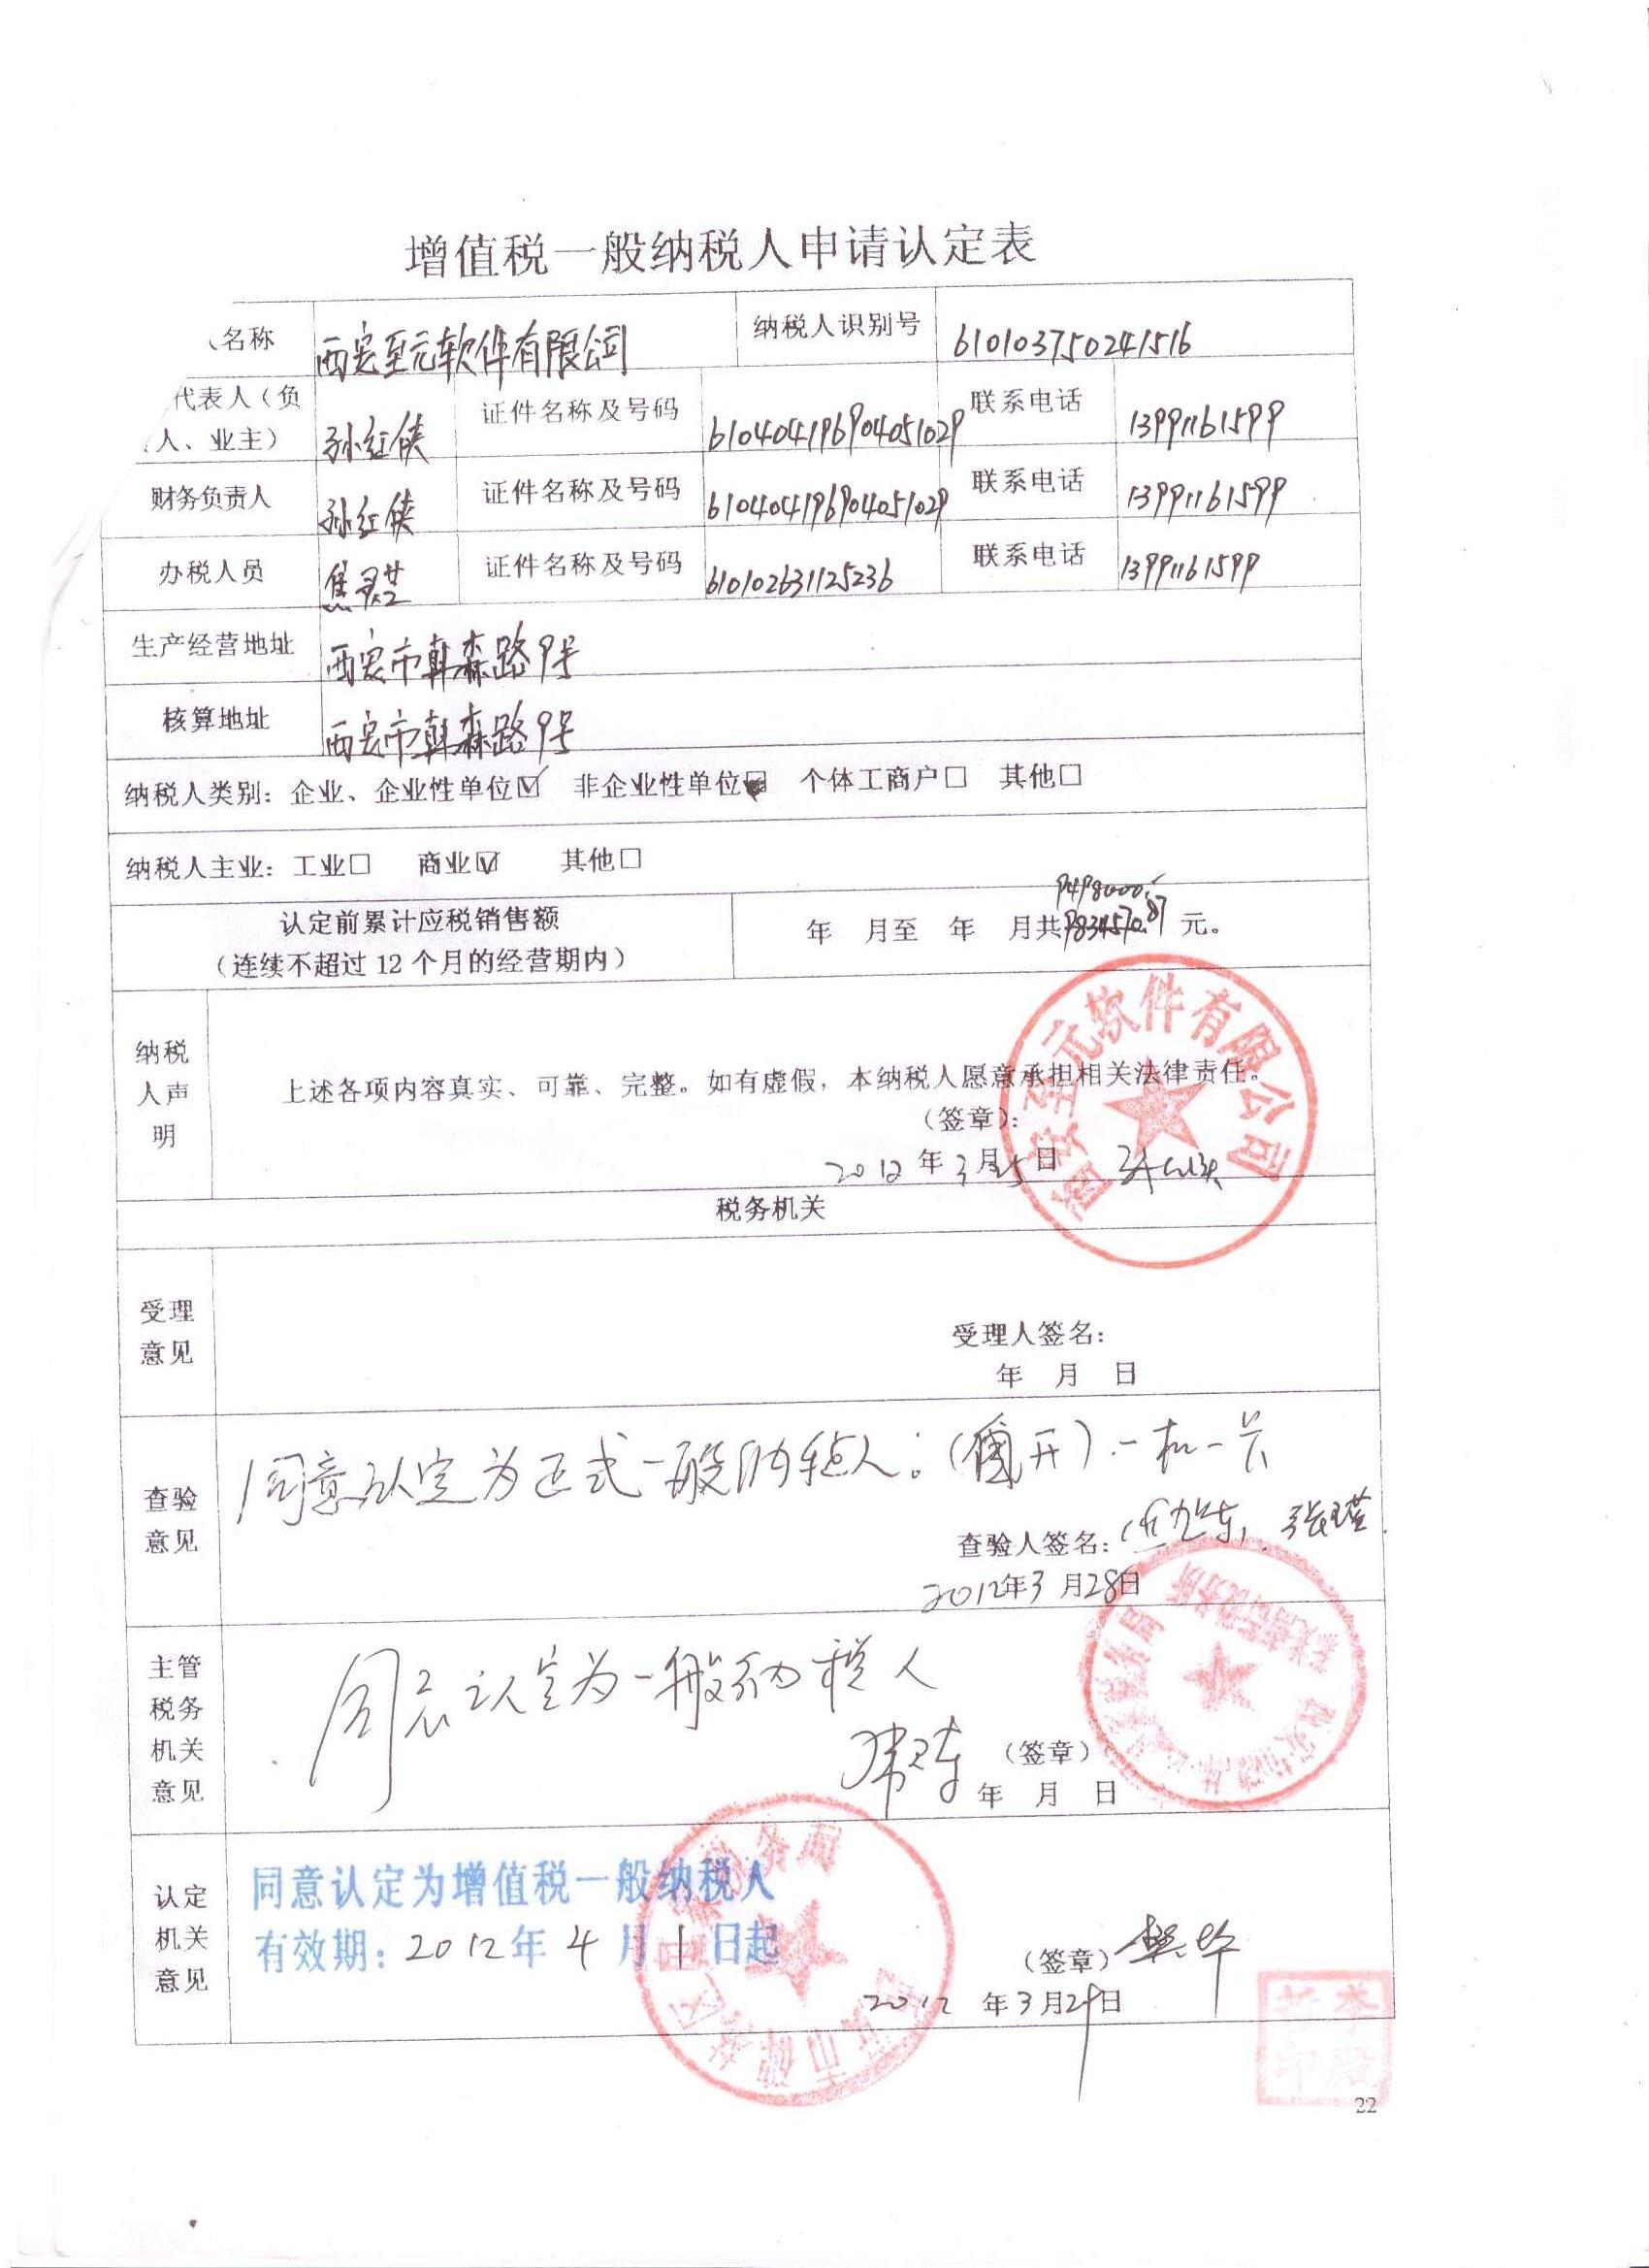 增值税一般纳税人申请认定表
名称 西安至元软件有限公司 纳税人识别号 610103750241516
代表人（负
人、业主） 孙红侠 证件名称及号码 610404196904051029 联系电话 13991161599
财务负责人 孙红侠 证件名称及号码 610404196904051029 联系电话 13991161599
办税人员 焦 证件名称及号码 610102631125236 联系电话 13991161599
生产经营地址 西安市韩森路9号
核算地址 西安市韩森路9号
纳税人类别：企业、企业性单位☑ 非企业性单位 个体工商户□ 其他□
纳税人主业：工业□ 商业☑ 其他□
9498000
认定前累计应税销售额
（连续不超过 12 个月的经营期内）
年 月至 年 月共9834570.87元。
纳税
人声
明
上述各项内容真实、可靠、完整。如有虚假，本纳税人愿意承担相关法律责任。
（签章）：
2012年3月25日 孙红侠
西安至元软件有限公司
税务机关
受理
意见
受理人签名：
年 月 日
查验
意见
同意认定为正式一般纳税人：（ 开）一机一卡
查验人签名： 张瑾
2012年3月28日
主管
税务
机关
意见
同意认定为一般纳税人
（签章）
年 月 日
认定
机关
意见
同意认定为增值税一般纳税人
有效期：2012年4月1日起
（签章） 樊华
2012年3月29日
22